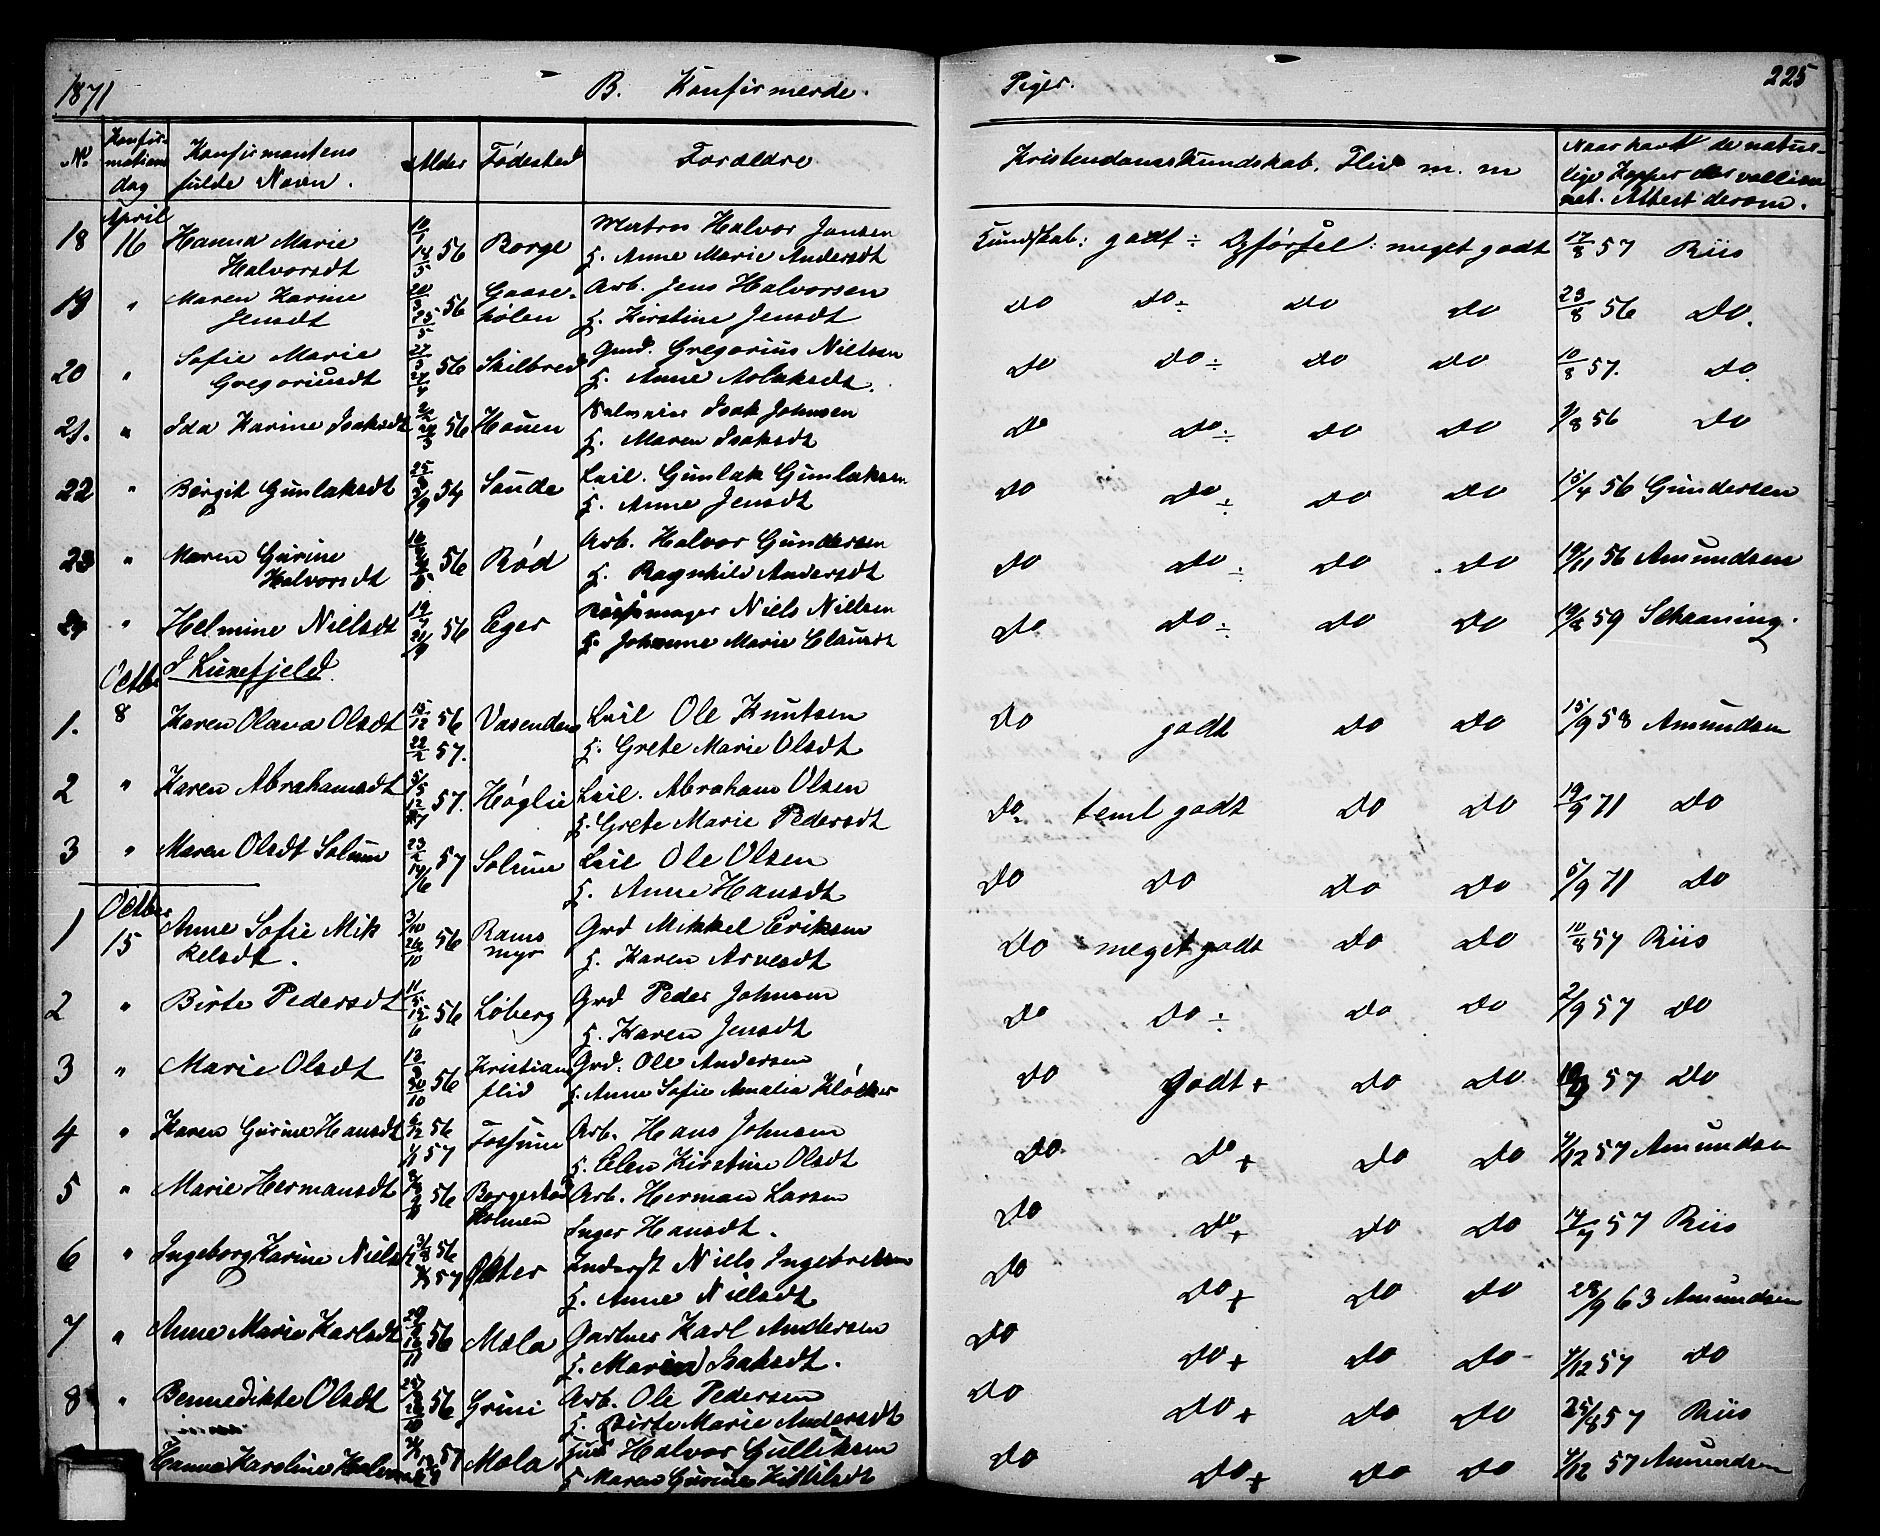 1871 B. Konfirmerde. Piger. 225
No. Konfirmations dag Konfirmantens fulde Navn. Alder Fødested Forældre Kristendomskundskab, Flid m. m Naar havt de naturlige Kopper eller vaccineret. Attest derom.
April
18 16 Hanna Marie Halvorsdt 56 Borge Matros Halvor Jansen Kundskab: godt ÷ Opførsel: meget godt 17/8 57 Riis
14/5 H. Anne Marie Andersdt
19 " Maren Karine Jensdt 20/3 56 Gaaseholen Arb. Jens Halvorsen do do÷ do do 23/8 56 Do.
25/5 H. Kirstine Jensdt
20 " Sofie Marie Gregoriusdt 56 Skilbred Gmd. Gregorius Nielsen do do÷ do do 10/8 57. do
H. Anne Aslaksdt.
21. " Ida Karine Isaksdt 56 Houen Isak Johnsen do do÷ do do 9/8 56 Do
H. Maren Isaksdt
22 " Børgit Gunlaksdt 25/8 54 Saude Leil. Gunlak Gunlaksen do do÷ do do 15/4 56 Gundersen
H. Anne Jensdt
23 " Maren Gurine Halvorsdt 56 Rød Arb. Halvor Gundersen do do÷ do do 19/11 56 Amundsen
H. Ragnhild Andersdt
24 " Helmine Nielsdt 56 Eger Niels Nielsen do do÷ do do 59 Schaaning.
H. Johanne Marie Clausdt
Octbr I Luxefjeld.
1. 8 Karen Olava Olsdt 15/12 56 Vasenden Leil Ole Knutsen do godt do do 15/9 58 Amundsen
22/2 57. H. Grete Marie Olsdt
2 " Karen Abrahamsdt 5/5 57. Høglie Leil. Abraham Olsen do. teml godt do do 19/9 71 do
12/7 H. Grete Marie Pedersdt
3 " Maren Olsdt Solum 23/2 57 Solum Leil Ole Olsen do do do do 5/9 71 do
14/6 H. Anne Hansdt
Octbr
1 15 Anne Sofie Mikkelsdt. 56 Ramsmyr Grd Mikkel Eriksen do meget godt do do 10/8 57 Riis
26/10 H. Karen Arvesdt
2 " Birte Pedersdt 11/5 56 Løberg Grd Peder Johnsen do do÷ do do 2/9 57 do
15/6 H. Karen Jensdt
3 " Marie Olsdt 56 Kristiansflid Grd. Ole Andersen do godt + do do 57 do
30/10 H. Anne Sofie Amalia Kløcker
4 " Karen Gurine Hansdt 56 Fossum Arb. Hans Johnsen do do+ do do 4/12 57 Amundsen
1/1 57 H. Elen Kirstine Olsdt
5 " Marie Hermansdt 56 Borgestad Holmen Arb. Herman Larsen do do+ do do 14/7 57 Riis
Inger Hansdt.
6 " Ingeborg Karine Nielsdt 56 Øster Inderst Niels Ingebretsen do do+ do do 28/9 63 Amundsen
57 H. Anne Nielsdt
7 " Anne Marie Karlsdt 56 Mæla Gartner Karl Andersen do do+ do do 4/12 57 do
H. Maren Isaksdt.
8 " Bennedikte Olsdt 56 Grini Arb. Ole Pedersen do do+ do do 25/8 57 Riis
H. Birte Marie Andersdt
Hanna Karoline 57 Mæla Halvor Gulliksen do do+ do do 4/12 57 Amundsen
H. Maren Gurine Kittilsdt